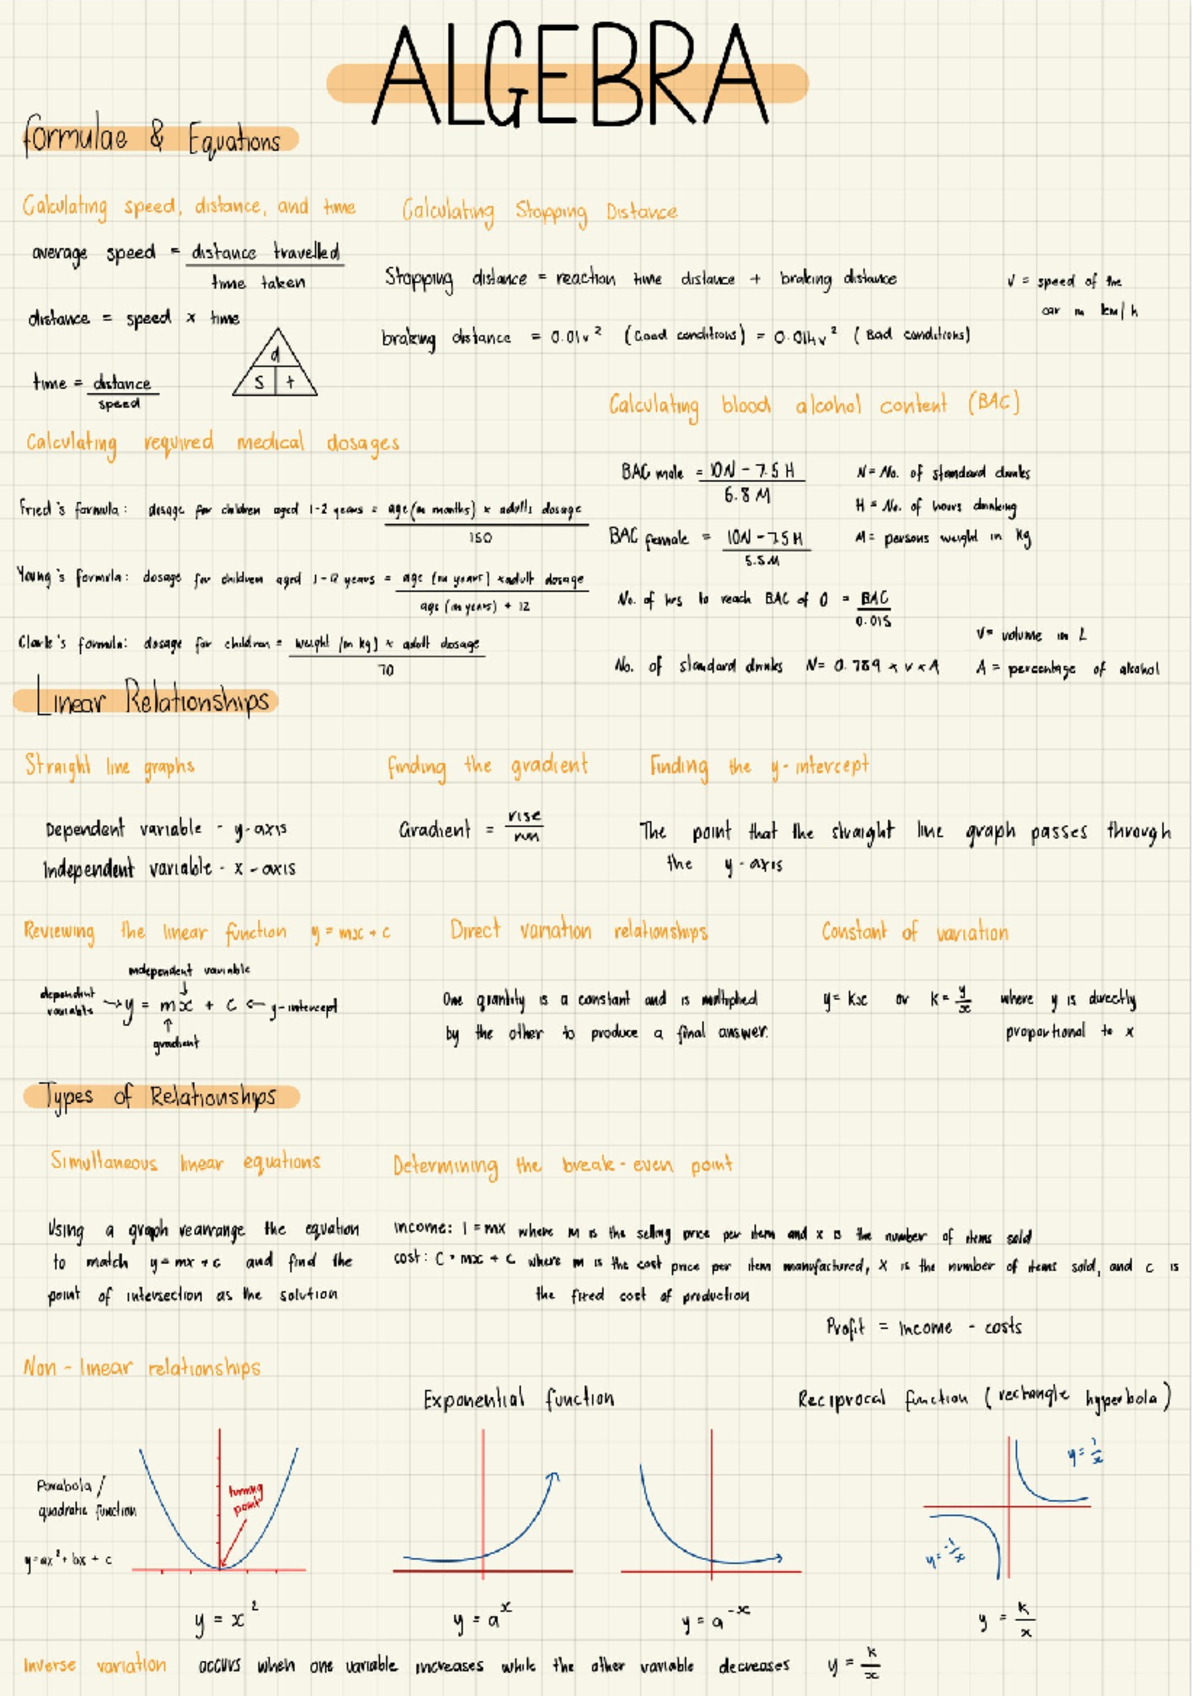 ALGEBRA
formulae & Equations
Calculating speed, distance, and time
average speed = distance travelled / time taken
distance = speed x time
time = distance / speed
d
s t
Calculating Stopping Distance
Stopping distance = reaction time distance + braking distance
braking distance = 0.01v² (Good conditions) = 0.014v² (Bad conditions)
V = speed of the
car in km/h
Calculating required medical dosages
Fried's formula: dosage for children aged 1-2 years = age (in months) x adults dosage / 150
Young's formula: dosage for children aged 1-12 years = age (in years) x adult dosage / age (in years) + 12
Clark's formula: dosage for children = weight (in kg) x adult dosage / 70
Calculating blood alcohol content (BAC)
BAC male = 10N - 7.5H / 6.8M
BAC female = 10N - 7.5H / 5.5M
N = No. of standard drinks
H = No. of hours drinking
M = persons weight in kg
No. of hrs to reach BAC of 0 = BAC / 0.015
No. of standard drinks N = 0.789 x V x A
V = volume in L
A = percentage of alcohol
Linear Relationships
Straight line graphs
Dependent variable - y-axis
Independent variable - x-axis
finding the gradient
Gradient = rise / run
Finding the y-intercept
The point that the straight line graph passes through
the y-axis
Reviewing the linear function y = mx + c
independent variable
dependent
variable → y = mx + c ← y-intercept
gradient
Direct variation relationships
One quantity is a constant and is multiplied
by the other to produce a final answer.
Constant of variation
y = kx or k = y/x where y is directly
proportional to x
Types of Relationships
Simultaneous linear equations
Using a graph rearrange the equation
to match y = mx + c and find the
point of intersection as the solution
Determining the break-even point
income: I = mx where m is the selling price per item and x is the number of items sold
cost: C = mx + c where m is the cost price per item manufactured, x is the number of items sold, and c is
the fixed cost of production
Profit = Income - costs
Non-linear relationships
Parabola /
quadratic function
y = ax² + bx + c
turning
point
y = x²
Exponential function
y = a^x
y = a^-x
Reciprocal function (rectangle hyperbola)
y = 1/x
y = -1/x
y = k/x
Inverse variation occurs when one variable increases while the other variable decreases y = k/x